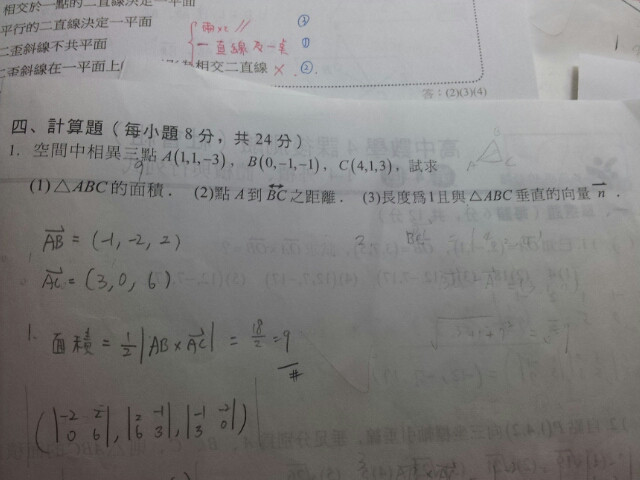 相交於一點的二直線決定一平面
平行的二直線決定一平面
二歪斜線不共平面
二歪斜線在一平面上
相交二直線 ✗ ②
兩xx // ③
一直線及一點 ①
答：(2)(3)(4)
四、計算題（每小題 8 分，共 24 分）
1. 空間中相異三點 A(1,1,−3)，B(0,−1,−1)，C(4,1,3)，試求
(1)△ABC 的面積． (2)點 A 到 BC 之距離． (3)長度為 1 且與 △ABC 垂直的向量 n．
AB = (-1, -2, 2)
AC = (3, 0, 6)
1. 面積 = 1/2 |AB × AC| = 18/2 = 9 #
|( |-2 2; 0 6|, |2 -1; 6 3|, |-1 -2; 3 0| )|